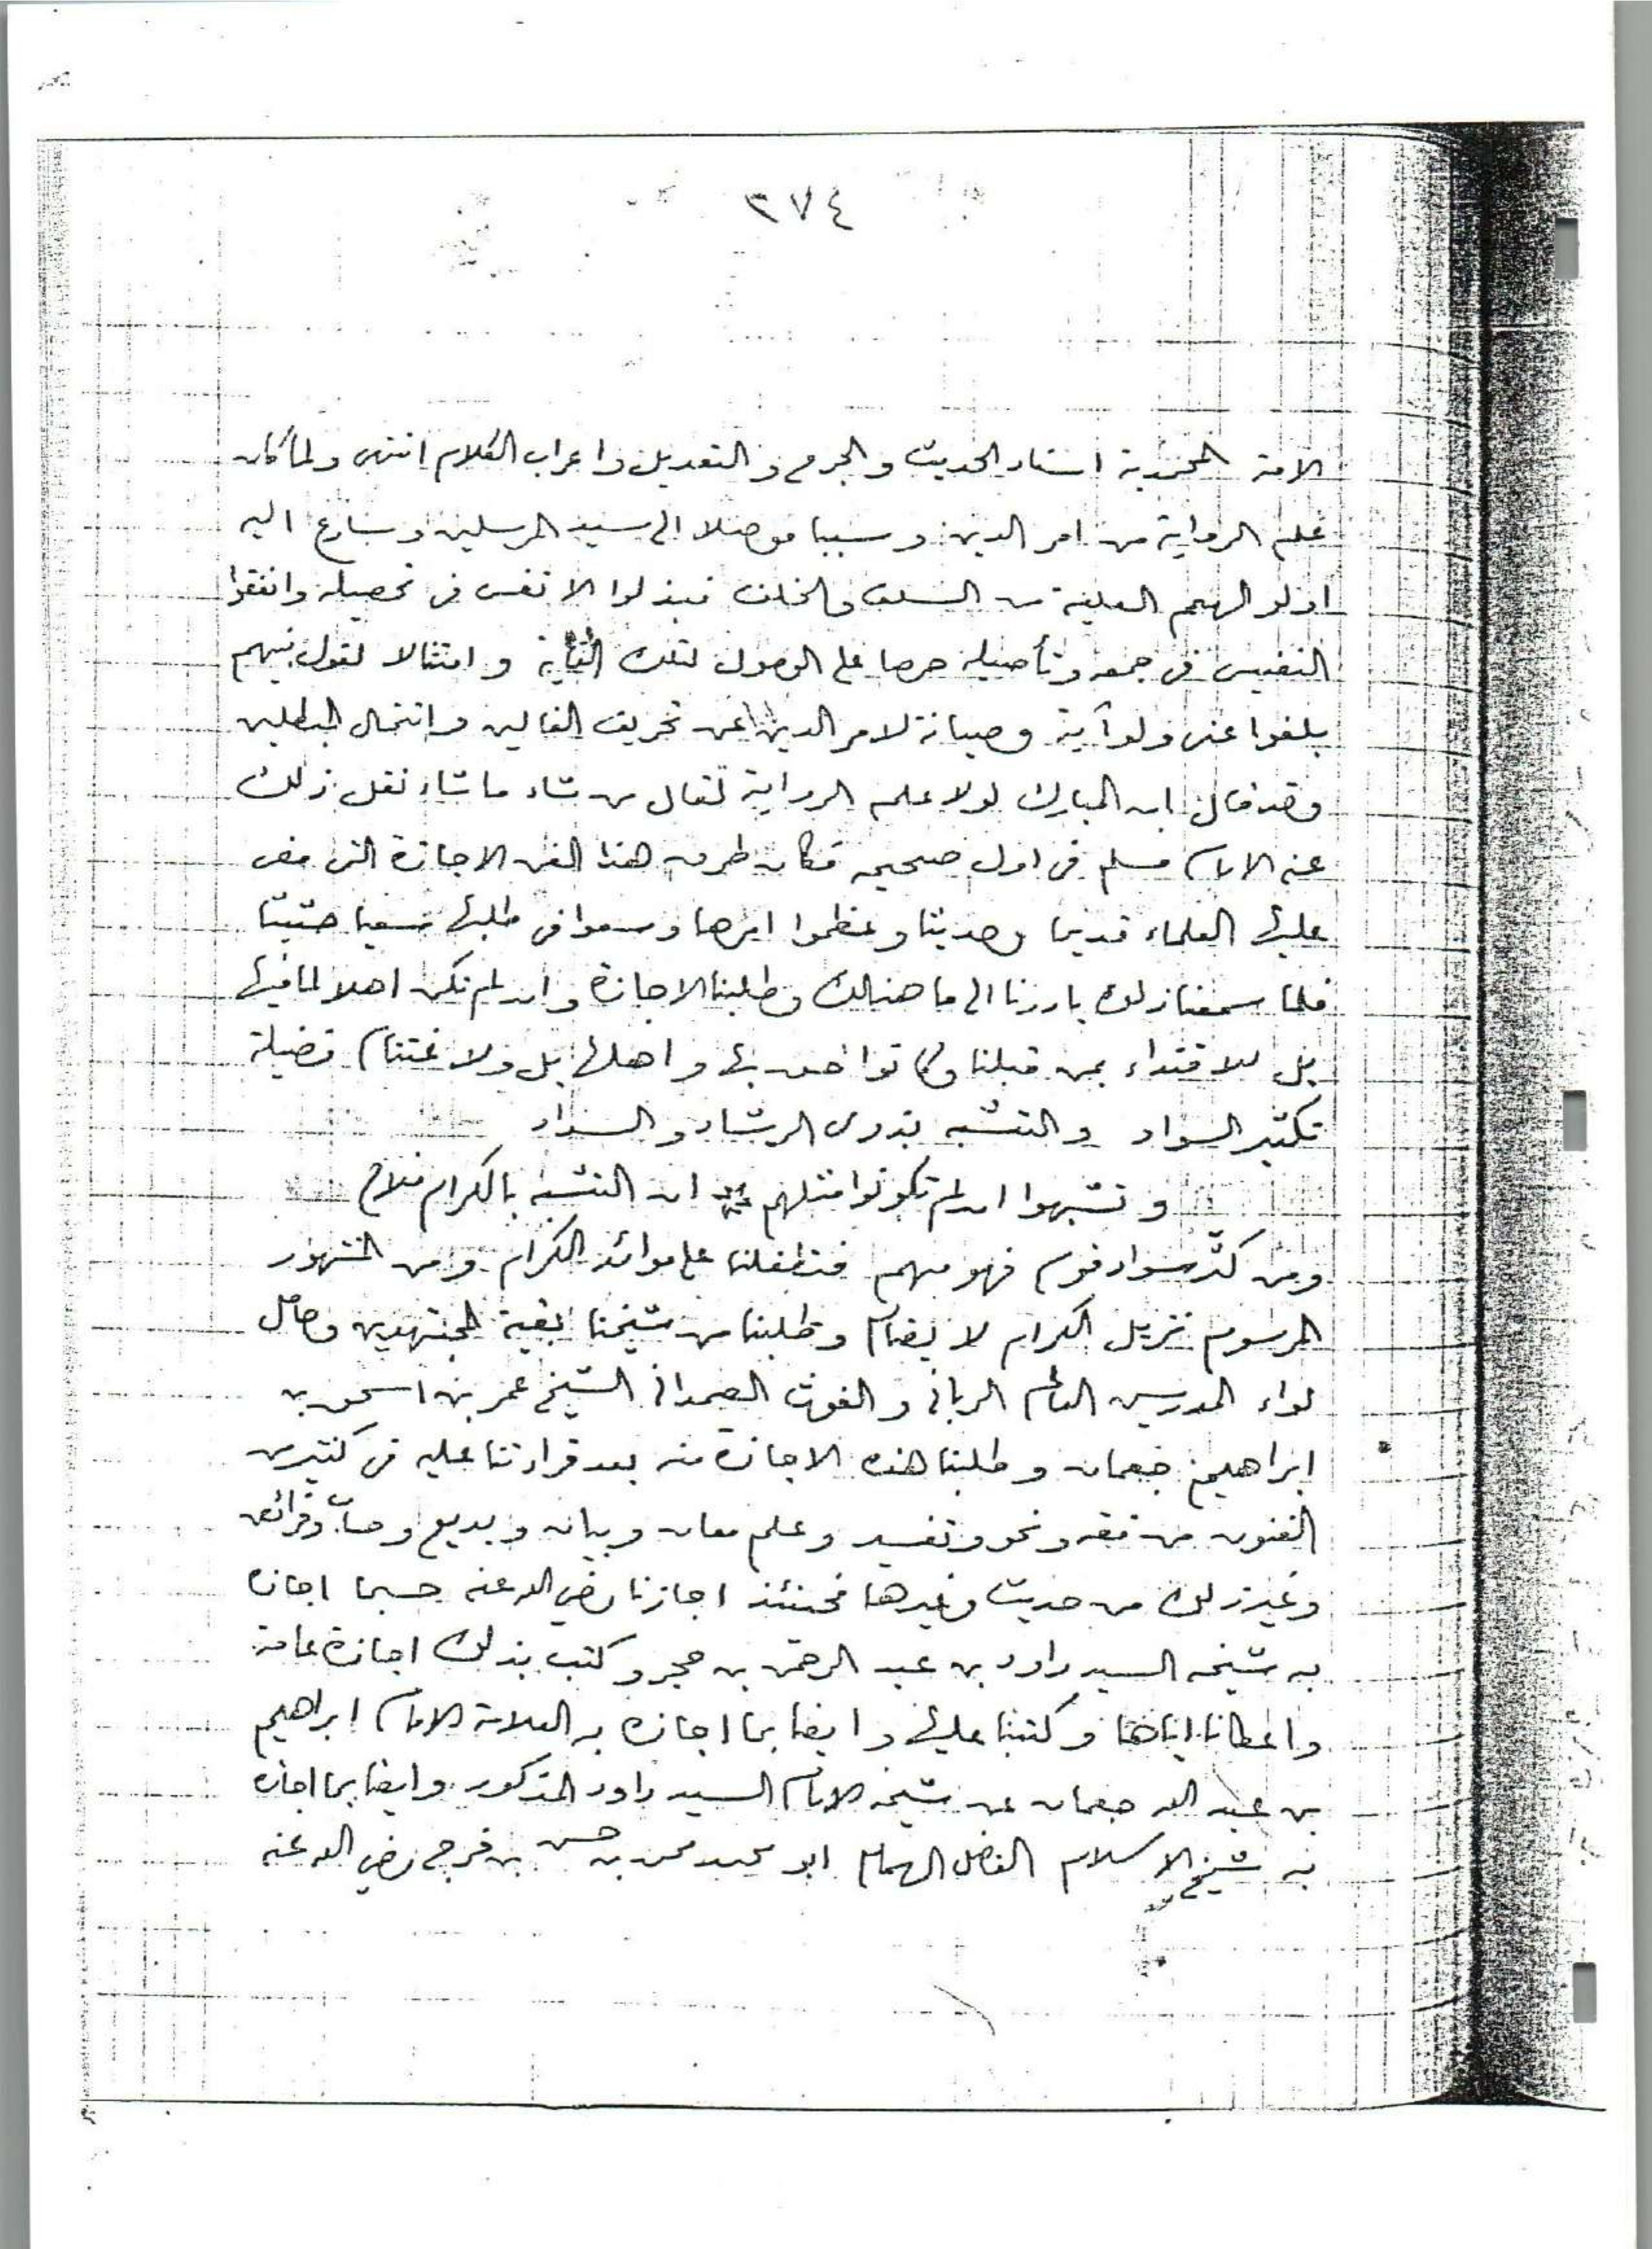 ٣٧٤
الامة المحمدية اسناد الحديث والجرح والتعديل واعراب الكلام انتهى ولما كان
علم الرواية من امر الدين وسببا موصلا الى سيد المرسلين وسارع اليه
اولو الهمم العلية من السلف والخلف فبذلوا الانفس في تحصيله وانفقوا
النفيس في جمعه وتأصيله حرصا على الوصول لتلك الغاية وامتثالا لقول نبيهم
بلغوا عني ولو آية وصيانة لامر الدين عن تحريف الغالين وانتحال المبطلين
وقد قال ابن المبارك لولا علم الرواية لقال من شاء ما شاء نقل ذلك
عنه الامام مسلم في اول صحيحه فكان طرق هذا الفن الاجازة التي مضى
عليها العلماء قديما وحديثا وعظموا امرها وسعوا في طلبها سعيا حثيثا
فلما سمعنا ذلك بادرنا الى ما هنالك وطلبنا الاجازة وان لم نكن اهلا لما فيها
بل للاقتداء بمن قبلنا وكانوا احق بها واهلها بل ولاغتنام فضيلة
تكثير السواد والتشبه بذوي الرشاد والسداد
وتشبهوا ان لم تكونوا مثلهم ان التشبه بالكرام فلاح
ومن كثّر سواد قوم فهو منهم فتطفلنا على موائد الكرام ومن المشهور
المرسوم نزيل الكرام لا يضام وطلبنا من شيخنا بقية المجتهدين وحامل
لواء المدرسين العالم الرباني والغوث الصمداني الشيخ عمر بن اسحق بن
ابراهيم جعمان وطلبنا هذه الاجازة منه بعد قراءتنا عليه في كثير من
الفنون من فقه ونحو وتفسير وعلم معان وبيان وبديع وحساب وفرائض
وغير ذلك من حديث وغيرها فحينئذ اجازنا رضي الله عنه حسبما اجازه
به شيخه السيد داود بن عبد الرحمن بن حجر وكتب بذلك اجازة عامة
واعطانا اياها وكتبنا عليها وايضا بما اجازه به العلامة الامام ابراهيم
بن عبد الله جعمان عن شيخه الامام السيد داود المذكور وايضا بما اجازه
به شيخ الاسلام الفاضل الهمام ابو محمد محمد بن حسن بن فرج رضي الله عنه